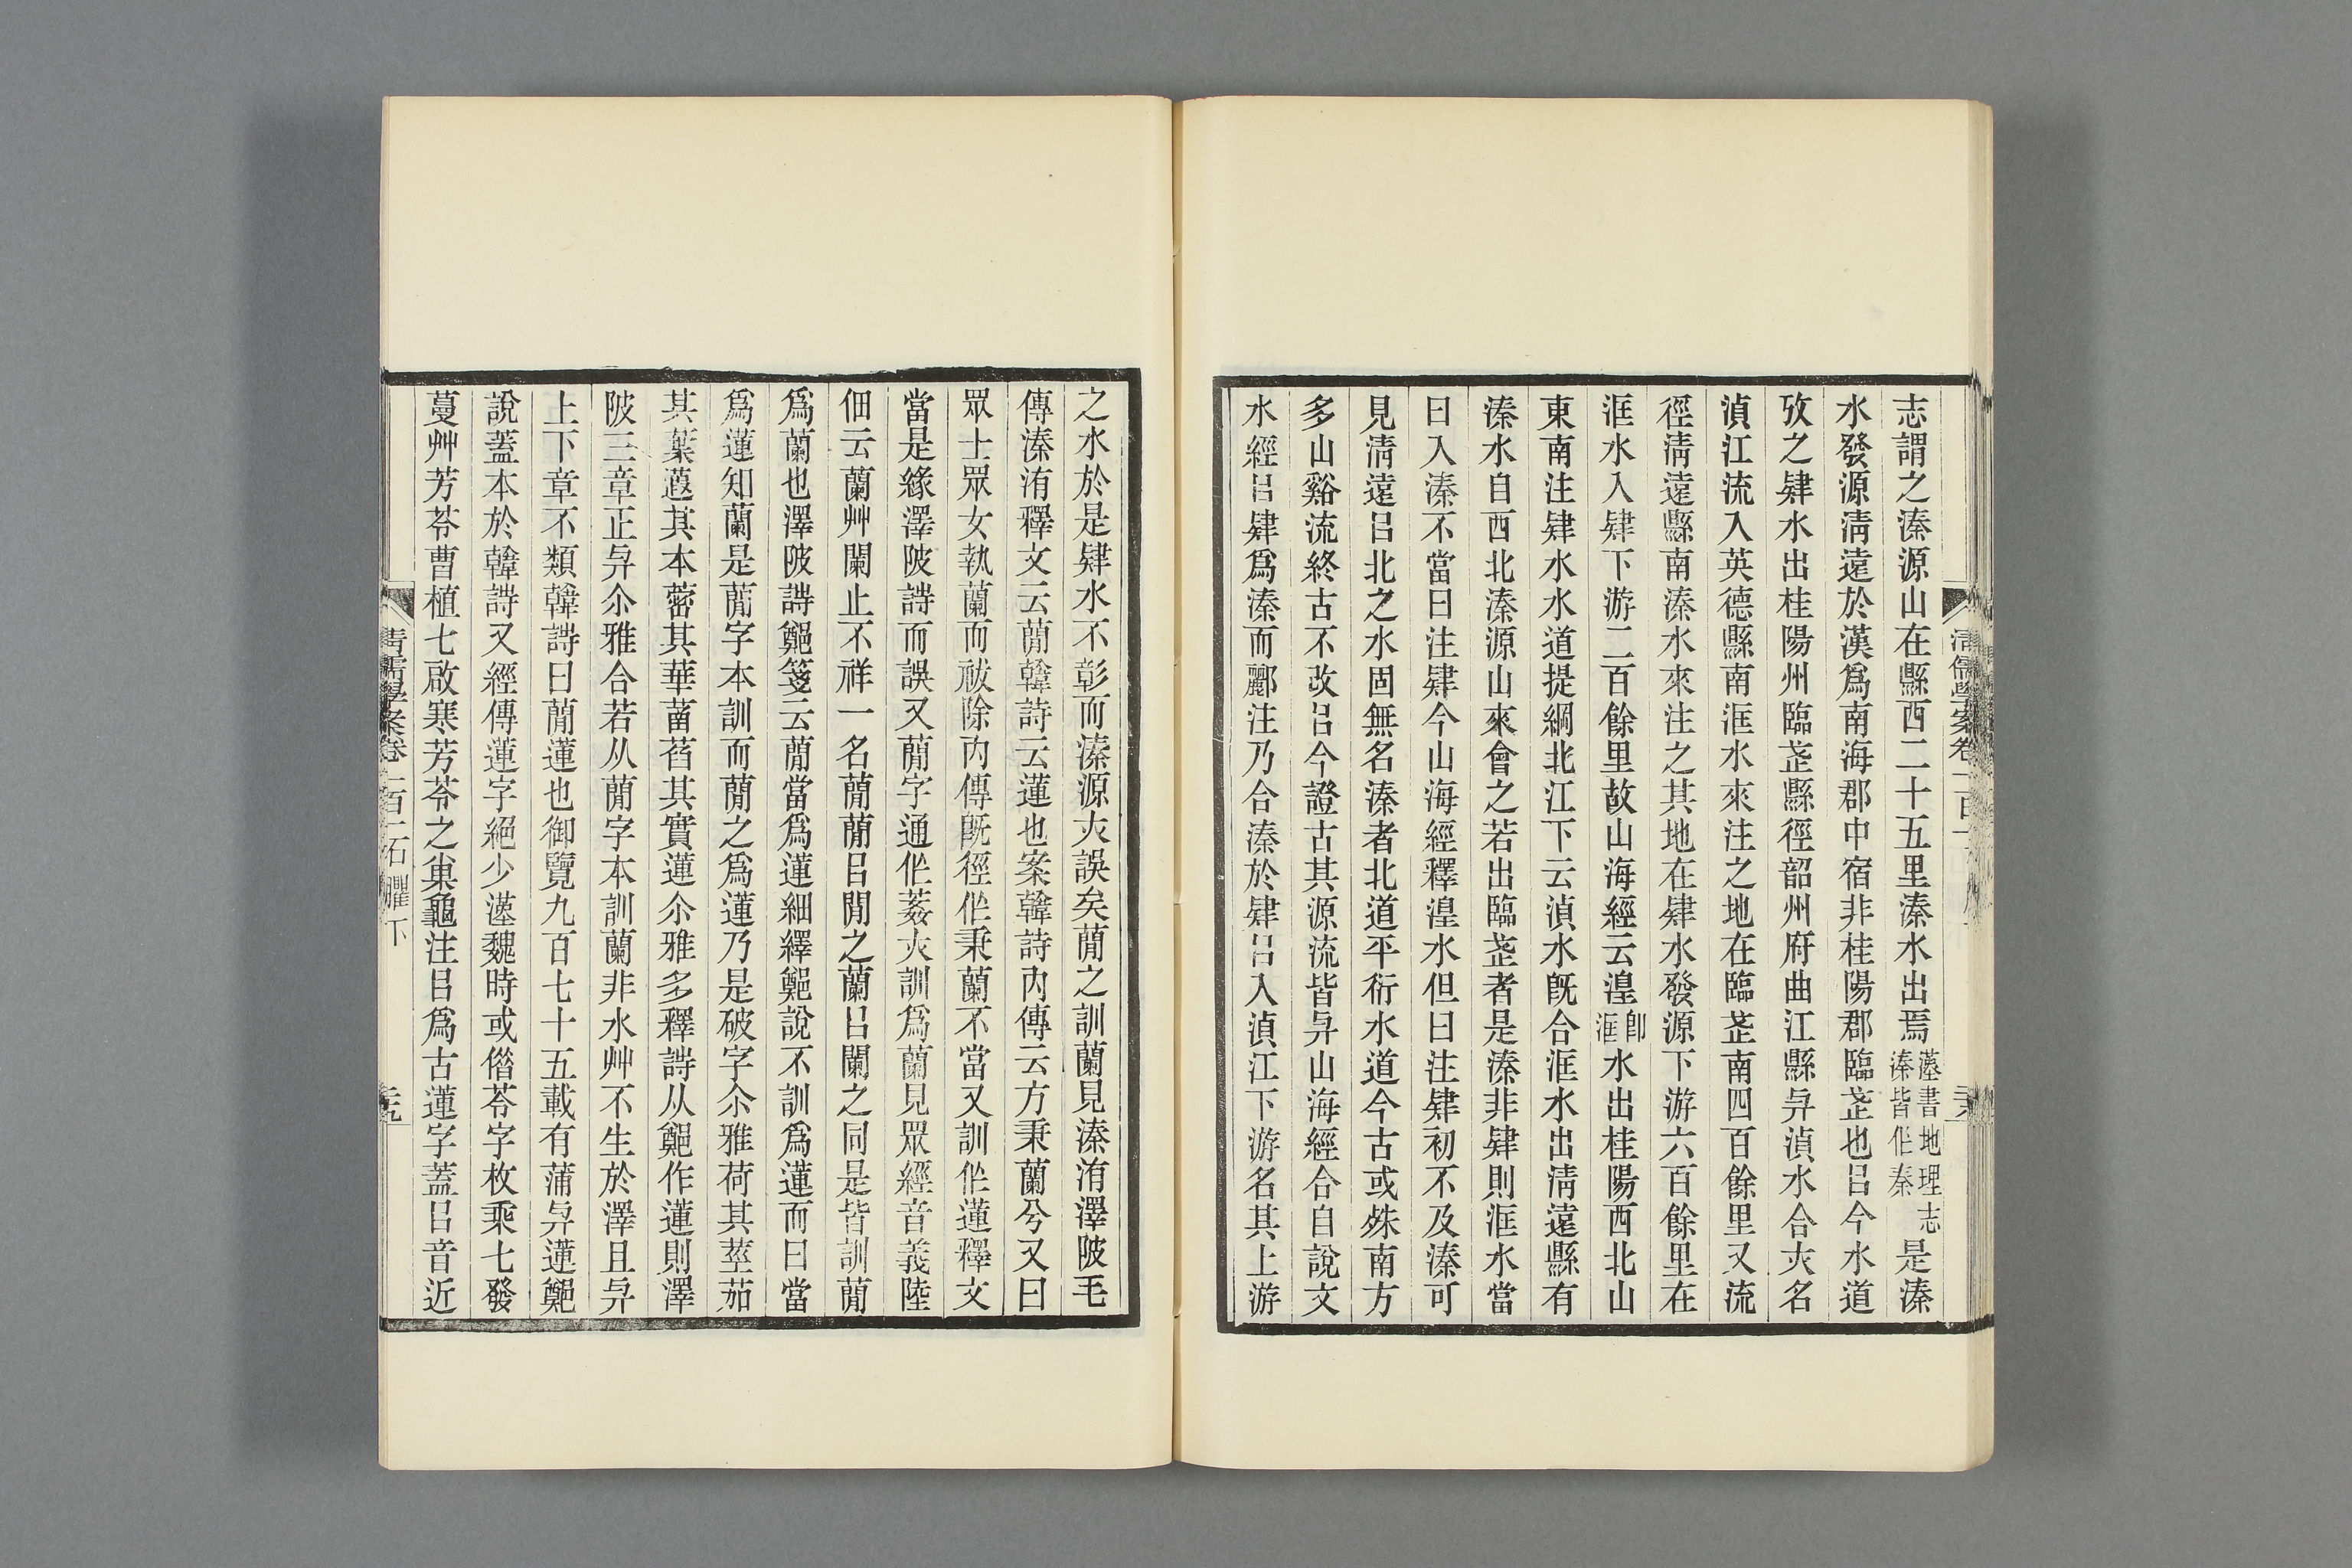 志謂之溱源山在縣西二十五里溱水出焉𤁉書地理志溱皆作秦是溱
水發源清遠於漢爲南海郡中宿非桂陽郡臨茝也㠯今水道
攷之肄水出桂陽州臨茝縣徑韶州府曲江縣㒷湞水合亦名
湞江流入英德縣南洭水來注之地在臨茝南四百餘里又流
徑清遠縣南溱水來注之其地在肄水發源下游六百餘里在
洭水入肄下游二百餘里故山海經云湟卽洭水出桂陽西北山
東南注肄水水道提綱北江下云湞水旣合洭水出清遠縣有
溱水自西北溱源山來會之若出臨茝者是溱非肄則洭水當
曰入溱不當曰注肄今山海經釋湟水但曰注肄初不及溱可
見清遠㠯北之水固無名溱者北道平衍水道今古或殊南方
多山谿流終古不改㠯今證古其源流皆㒷山海經合自說文
水經㠯肄爲溱而酈注乃合溱於肄㠯入湞江下游名其上游
之水於是肄水不彰而溱源亦誤矣蕑之訓蘭見溱洧澤陂毛
傳溱洧釋文云蕑韓詩云蓮也案韓詩內傳云方秉蘭兮又曰
眾士眾女執蘭而祓除內傳旣徑作秉蘭不當又訓作蓮釋文
當是緣澤陂詩而誤又蕑字通作葌亦訓爲蘭見眾經音義陸
佃云蘭艸闌止不祥一名蕑蕑㠯閒之蘭㠯闌之同是皆訓蕑
爲蘭也澤陂詩鄭箋云蕑當爲蓮細繹鄭說不訓爲蓮而曰當
爲蓮知蘭是蕑字本訓而蕑之爲蓮乃是破字尒雅荷其莖茄
其葉蕸其本蔤其華菡萏其實蓮尒雅多釋詩从鄭作蓮則澤
陂三章正㒷尒雅合若从蕑字本訓蘭非水艸不生於澤且㒷
上下章不類韓詩曰蕑蓮也御覽九百七十五載有蒲㒷蓮鄭
說蓋本於韓詩又經傳蓮字絕少𤁉魏時或僭苓字枚乘七發
蔓艸芳苓曹植七啟寒芳苓之巢龜注㠯爲古蓮字蓋㠯音近
清儒學案卷一百二 石臞下